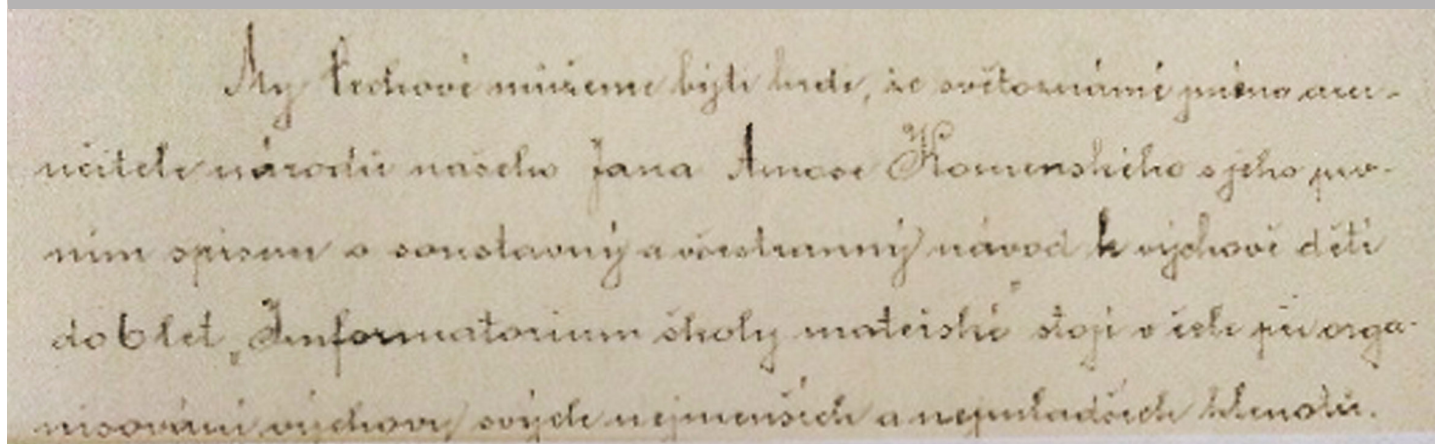 My Čechové můžeme býti hrdi, že světoznámé jméno
učitele národů našeho Jana Amose Komenského s jeho prv-
ním spisem o soustavný a všestranný návod k výchově dětí
do 6 let „Informatorium školy mateřské" stojí v čele při orga-
nisování výchovy svých nejmenších a nejmladších klenotů.